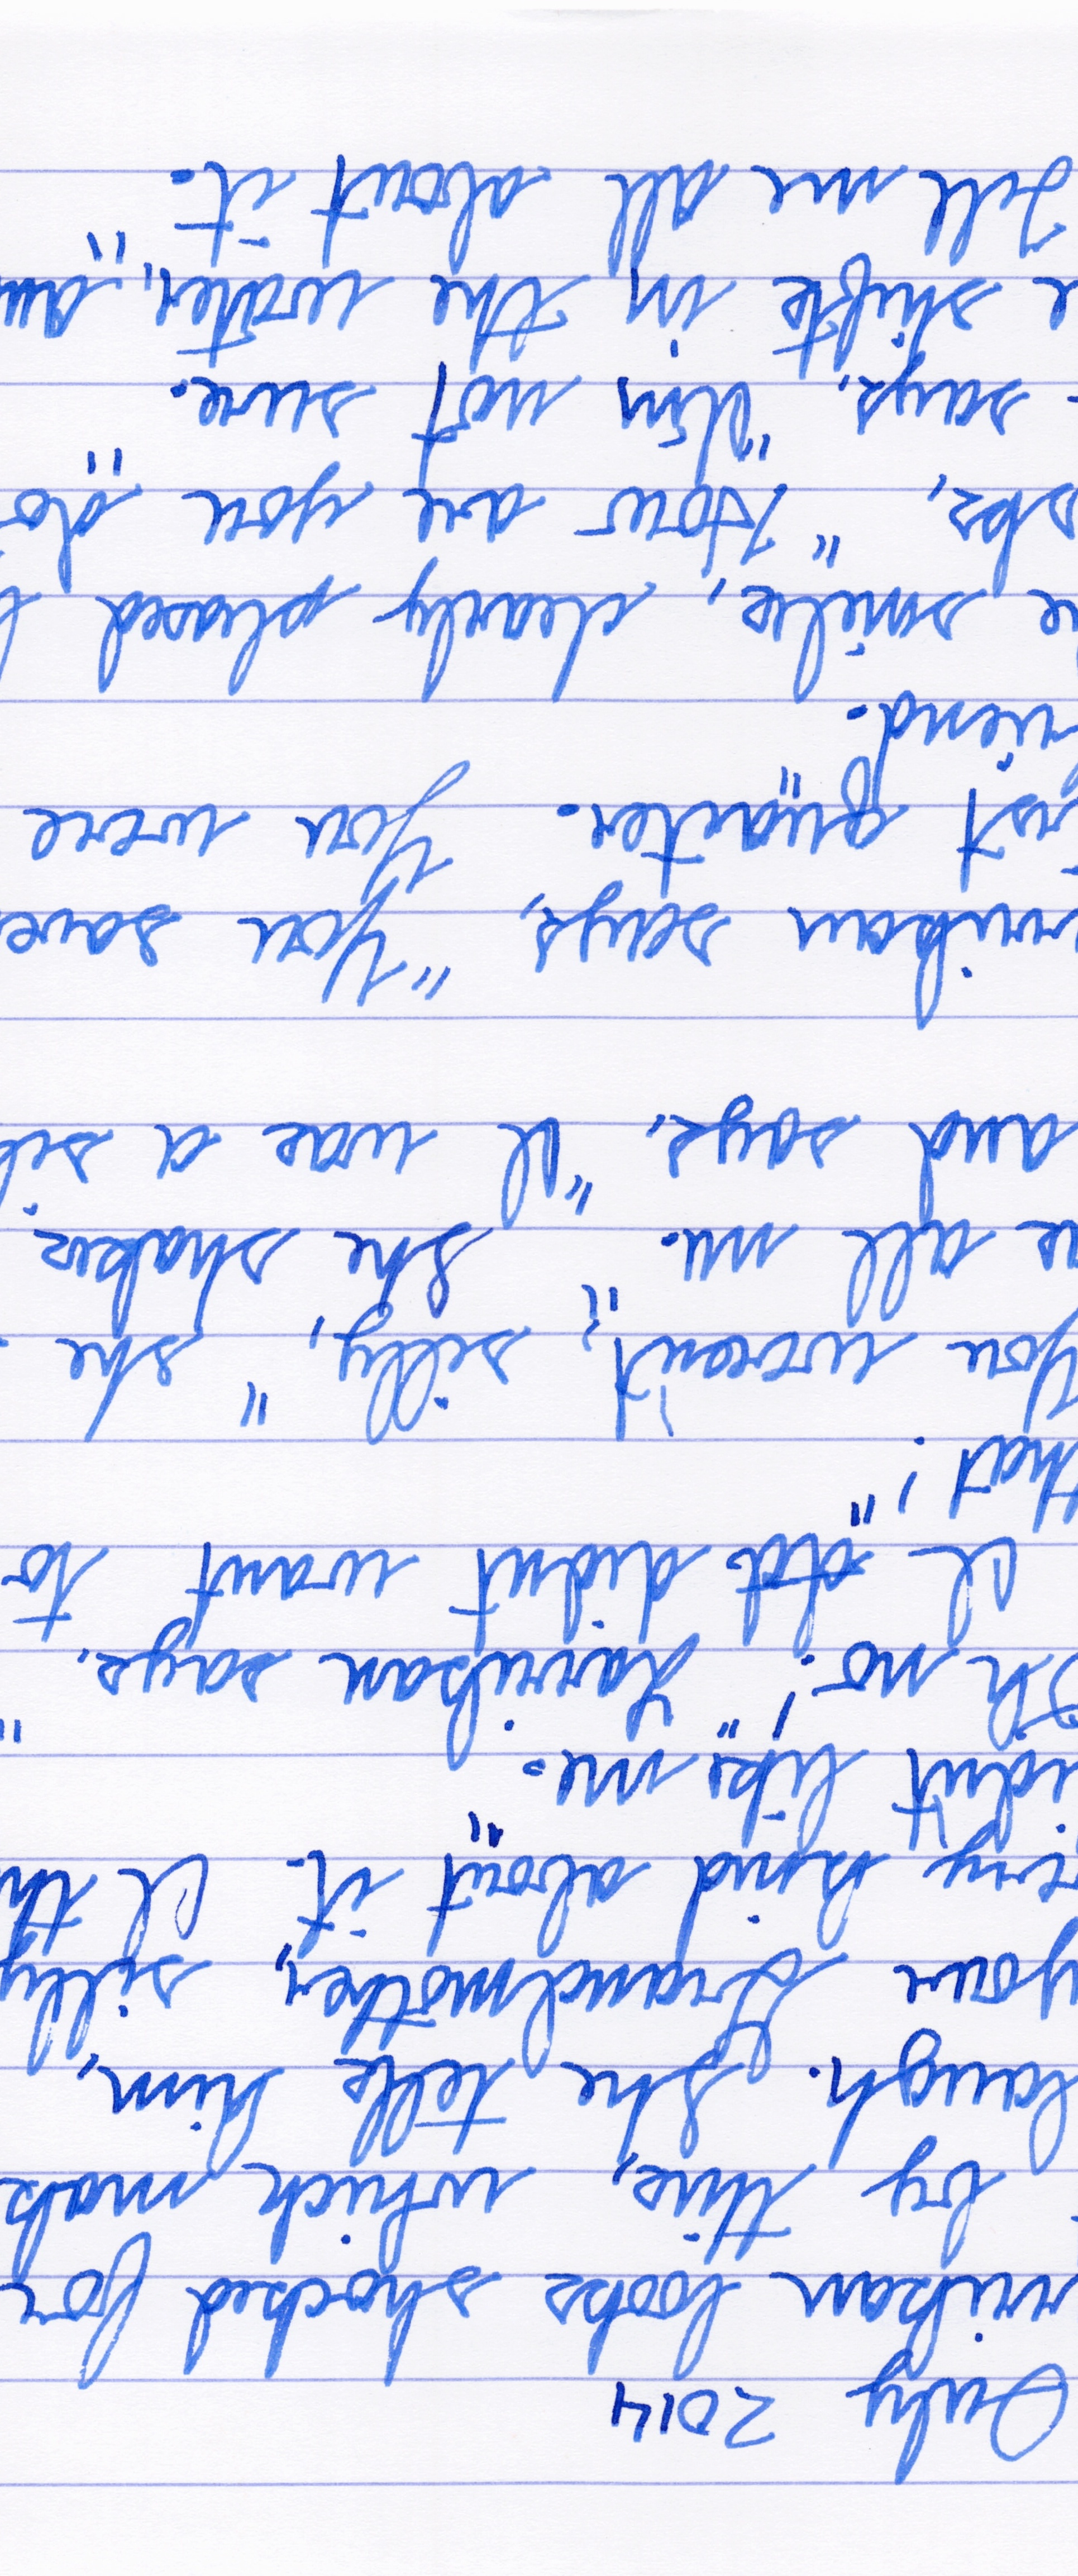 July 2014
rikan looks shocked for
by this, which mak
laugh. She tells him,
your Grandmother, silly
very kind about it. I th
idn't like me."
Oh no!" Larrikan says. "
I did didn't want to
that!"
You weren't, silly," she
all me." She shakes
and says, "I was a sil
rrikan says, "You save
rst quarter." You were
riend.
he smiles, clearly pleased
sks, "How are you do"
says, "I'm not sure.
e shifts in the water," an
Tell me all about it.